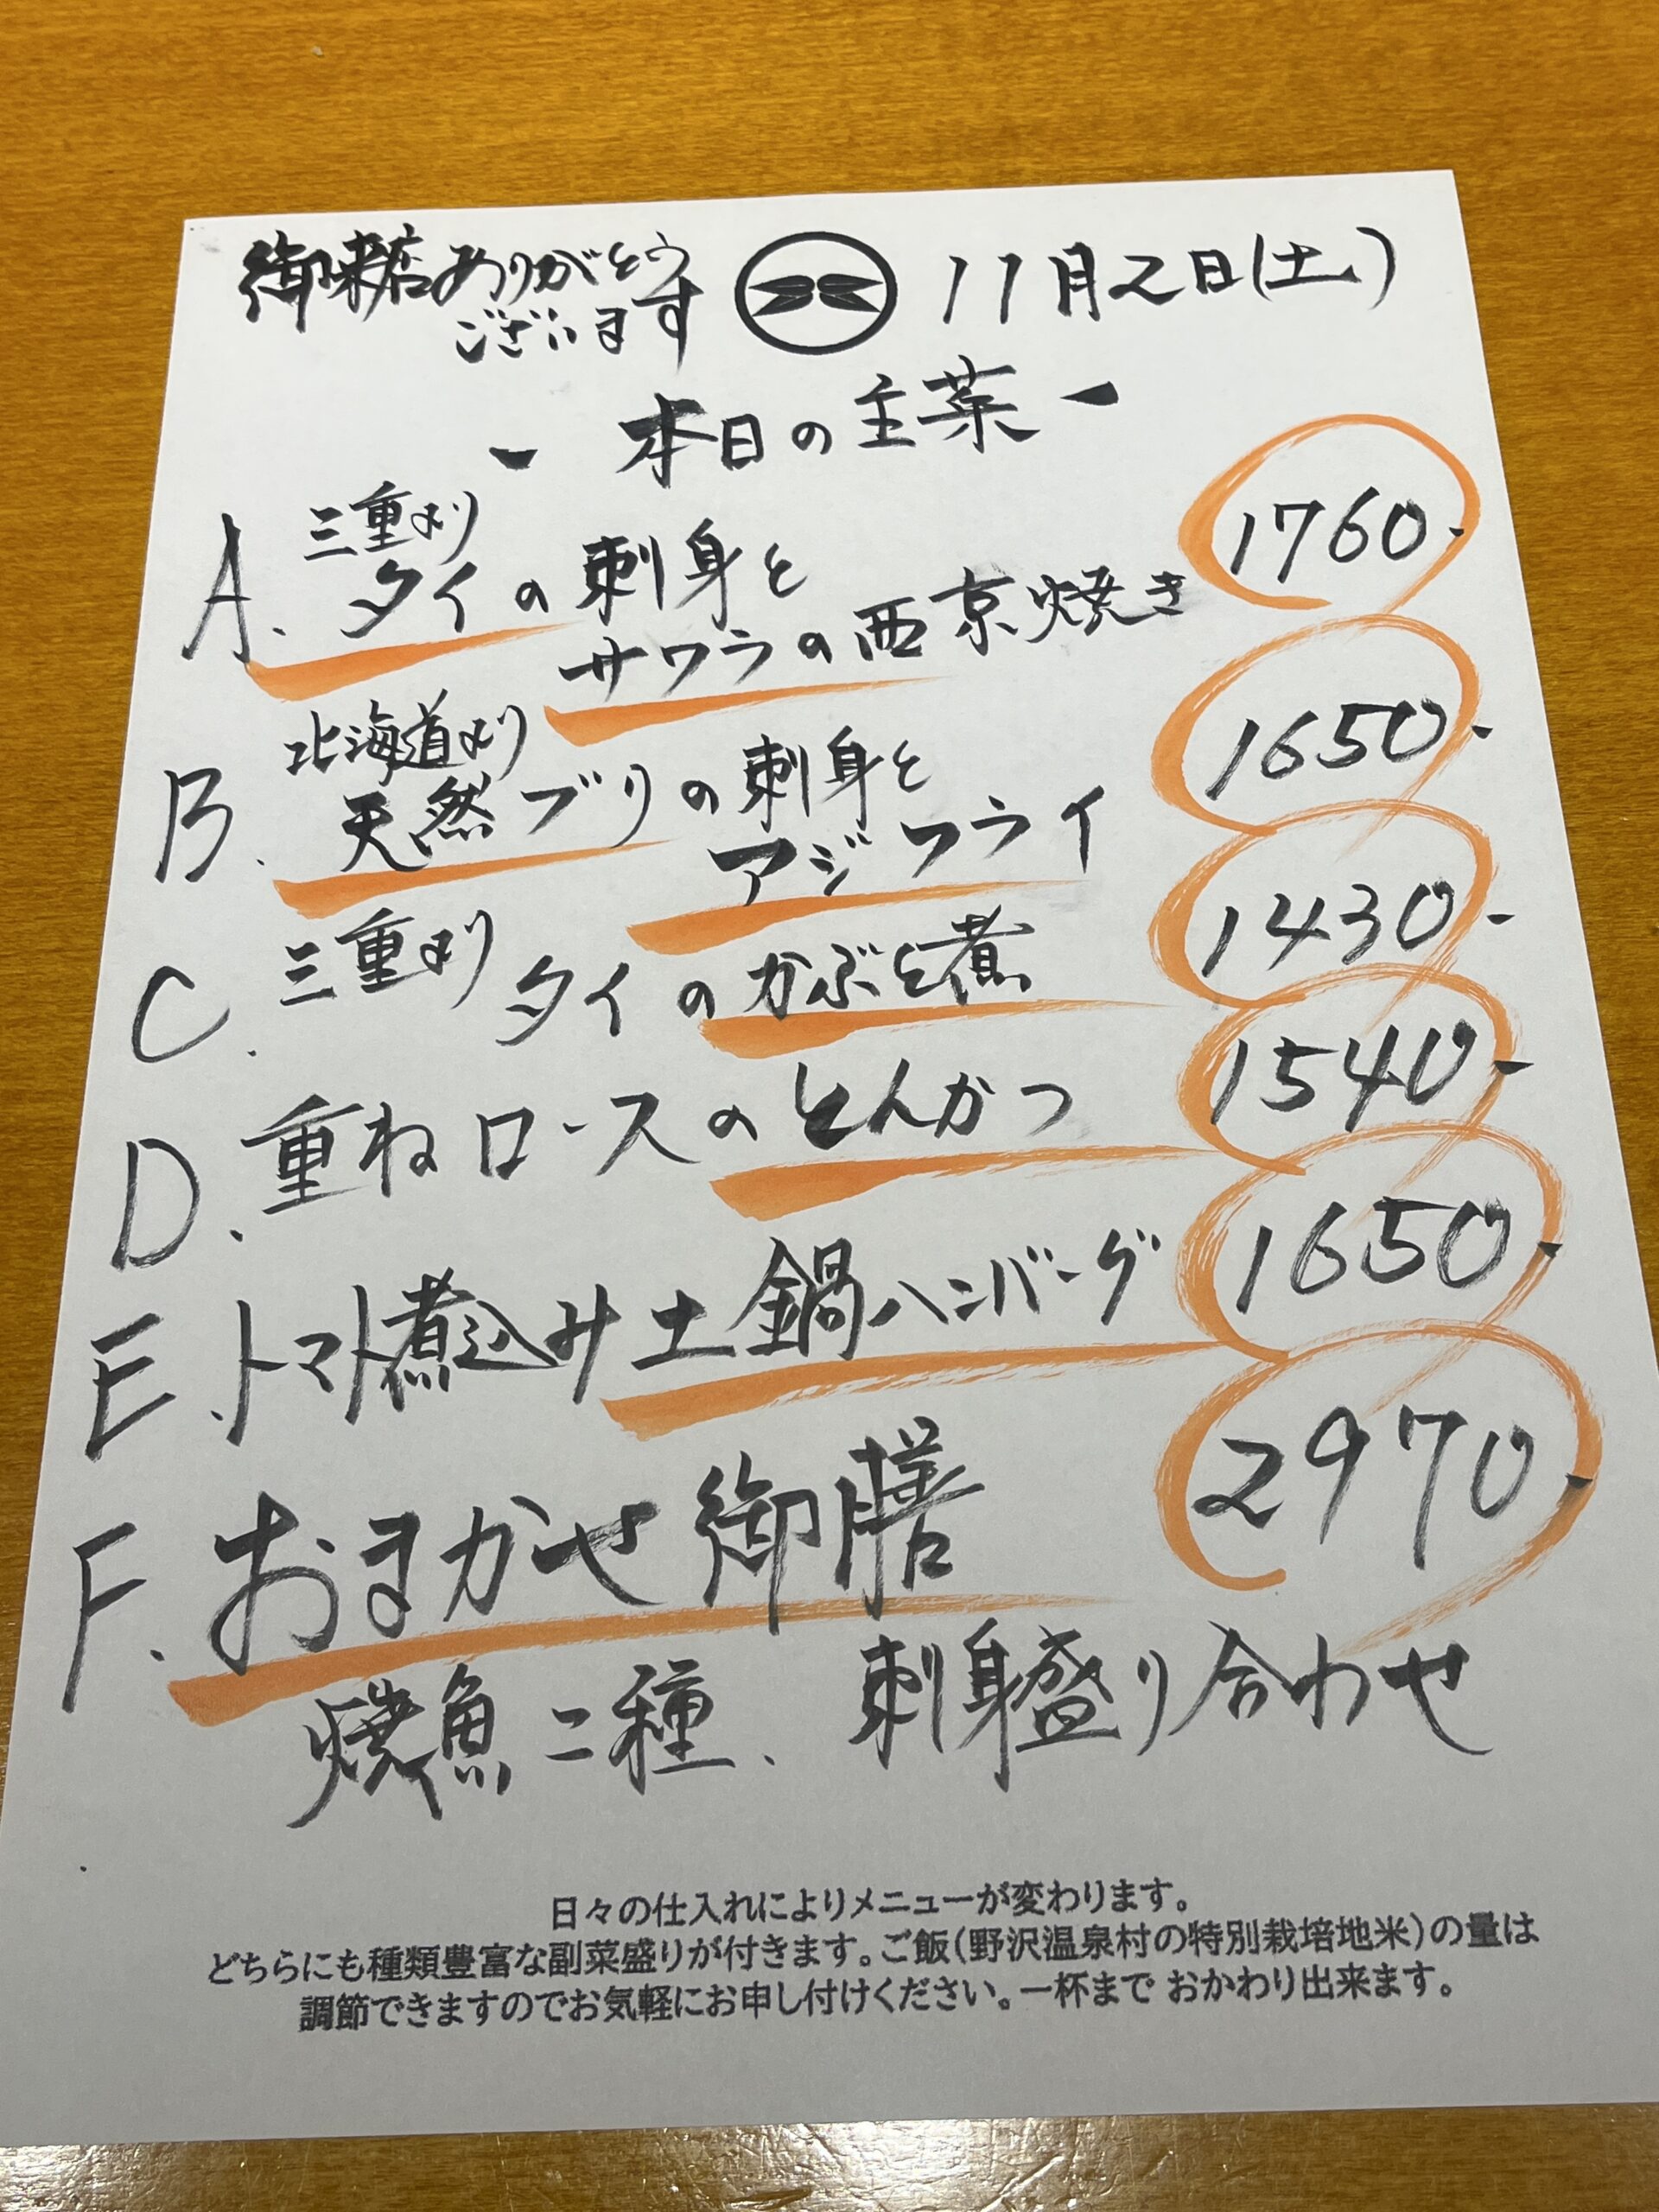 御来店ありがとう
ございます
11月2日(土)
- 本日の主菜 -
三重よりタイの刺身と
A. サワラの西京焼き 1760-
北海道より
B. 天然ブリの刺身と
アジフライ 1650-
C. 三重よりタイのかぶと煮 1430-
D. 重ねロースのとんかつ 1540-
E. トマト煮込み土鍋ハンバーグ 1650-
F. おまかせ御膳 2970-
焼魚二種、刺身盛り合わせ
日々の仕入れによりメニューが変わります。
どちらにも種類豊富な副菜盛りが付きます。ご飯(野沢温泉村の特別栽培地米)の量は
調節できますのでお気軽にお申し付けください。一杯まで おかわり出来ます。